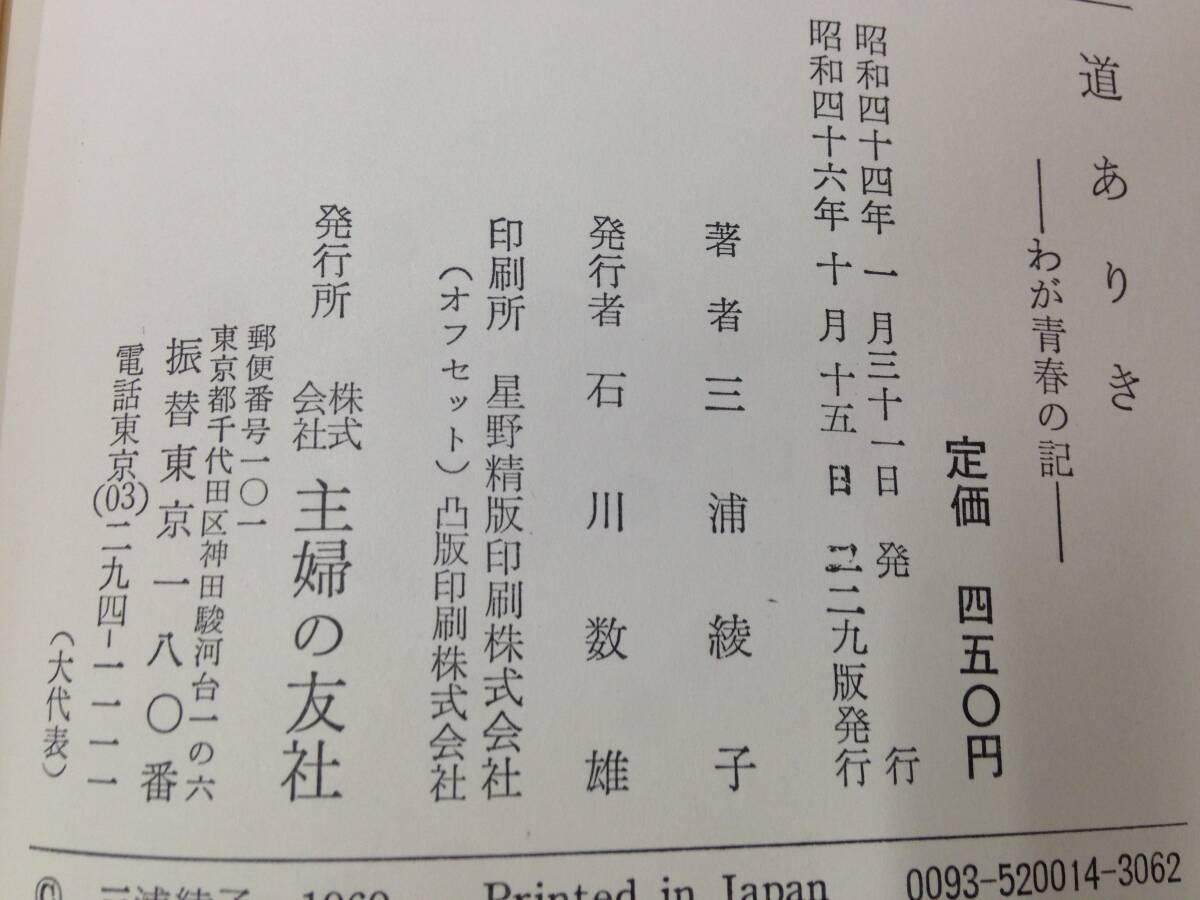 道ありき
―わが青春の記―
定価 四五〇円
昭和四十四年 一 月三十一日 発 行
昭和四十六年 十 月 十五 日 二二九版発行
著 者 三 浦 綾 子
発行者 石 川 数 雄
印刷所 星野精版印刷株式会社
(オフセット)凸版印刷株式会社
発行所 株式会社 主婦の友社
郵便番号一〇一
東京都千代田区神田駿河台一の六
振替東京一八〇番
電話東京(03)二九四-一一一一
(大代表)
© 三浦綾子 1969 Printed in Japan 0093-520014-3062